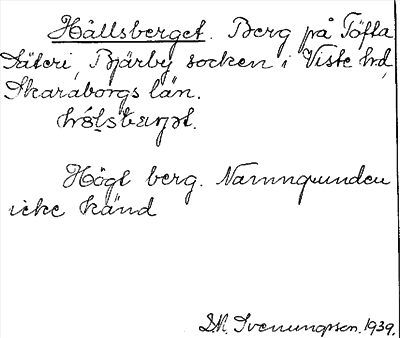 Hållsberget. Berg på Töfta
Säteri, Bjärby socken i Viste hd,
Skaraborgs län.
Högt berg. Namngrunden
icke känd
Svenungsson. 1939.